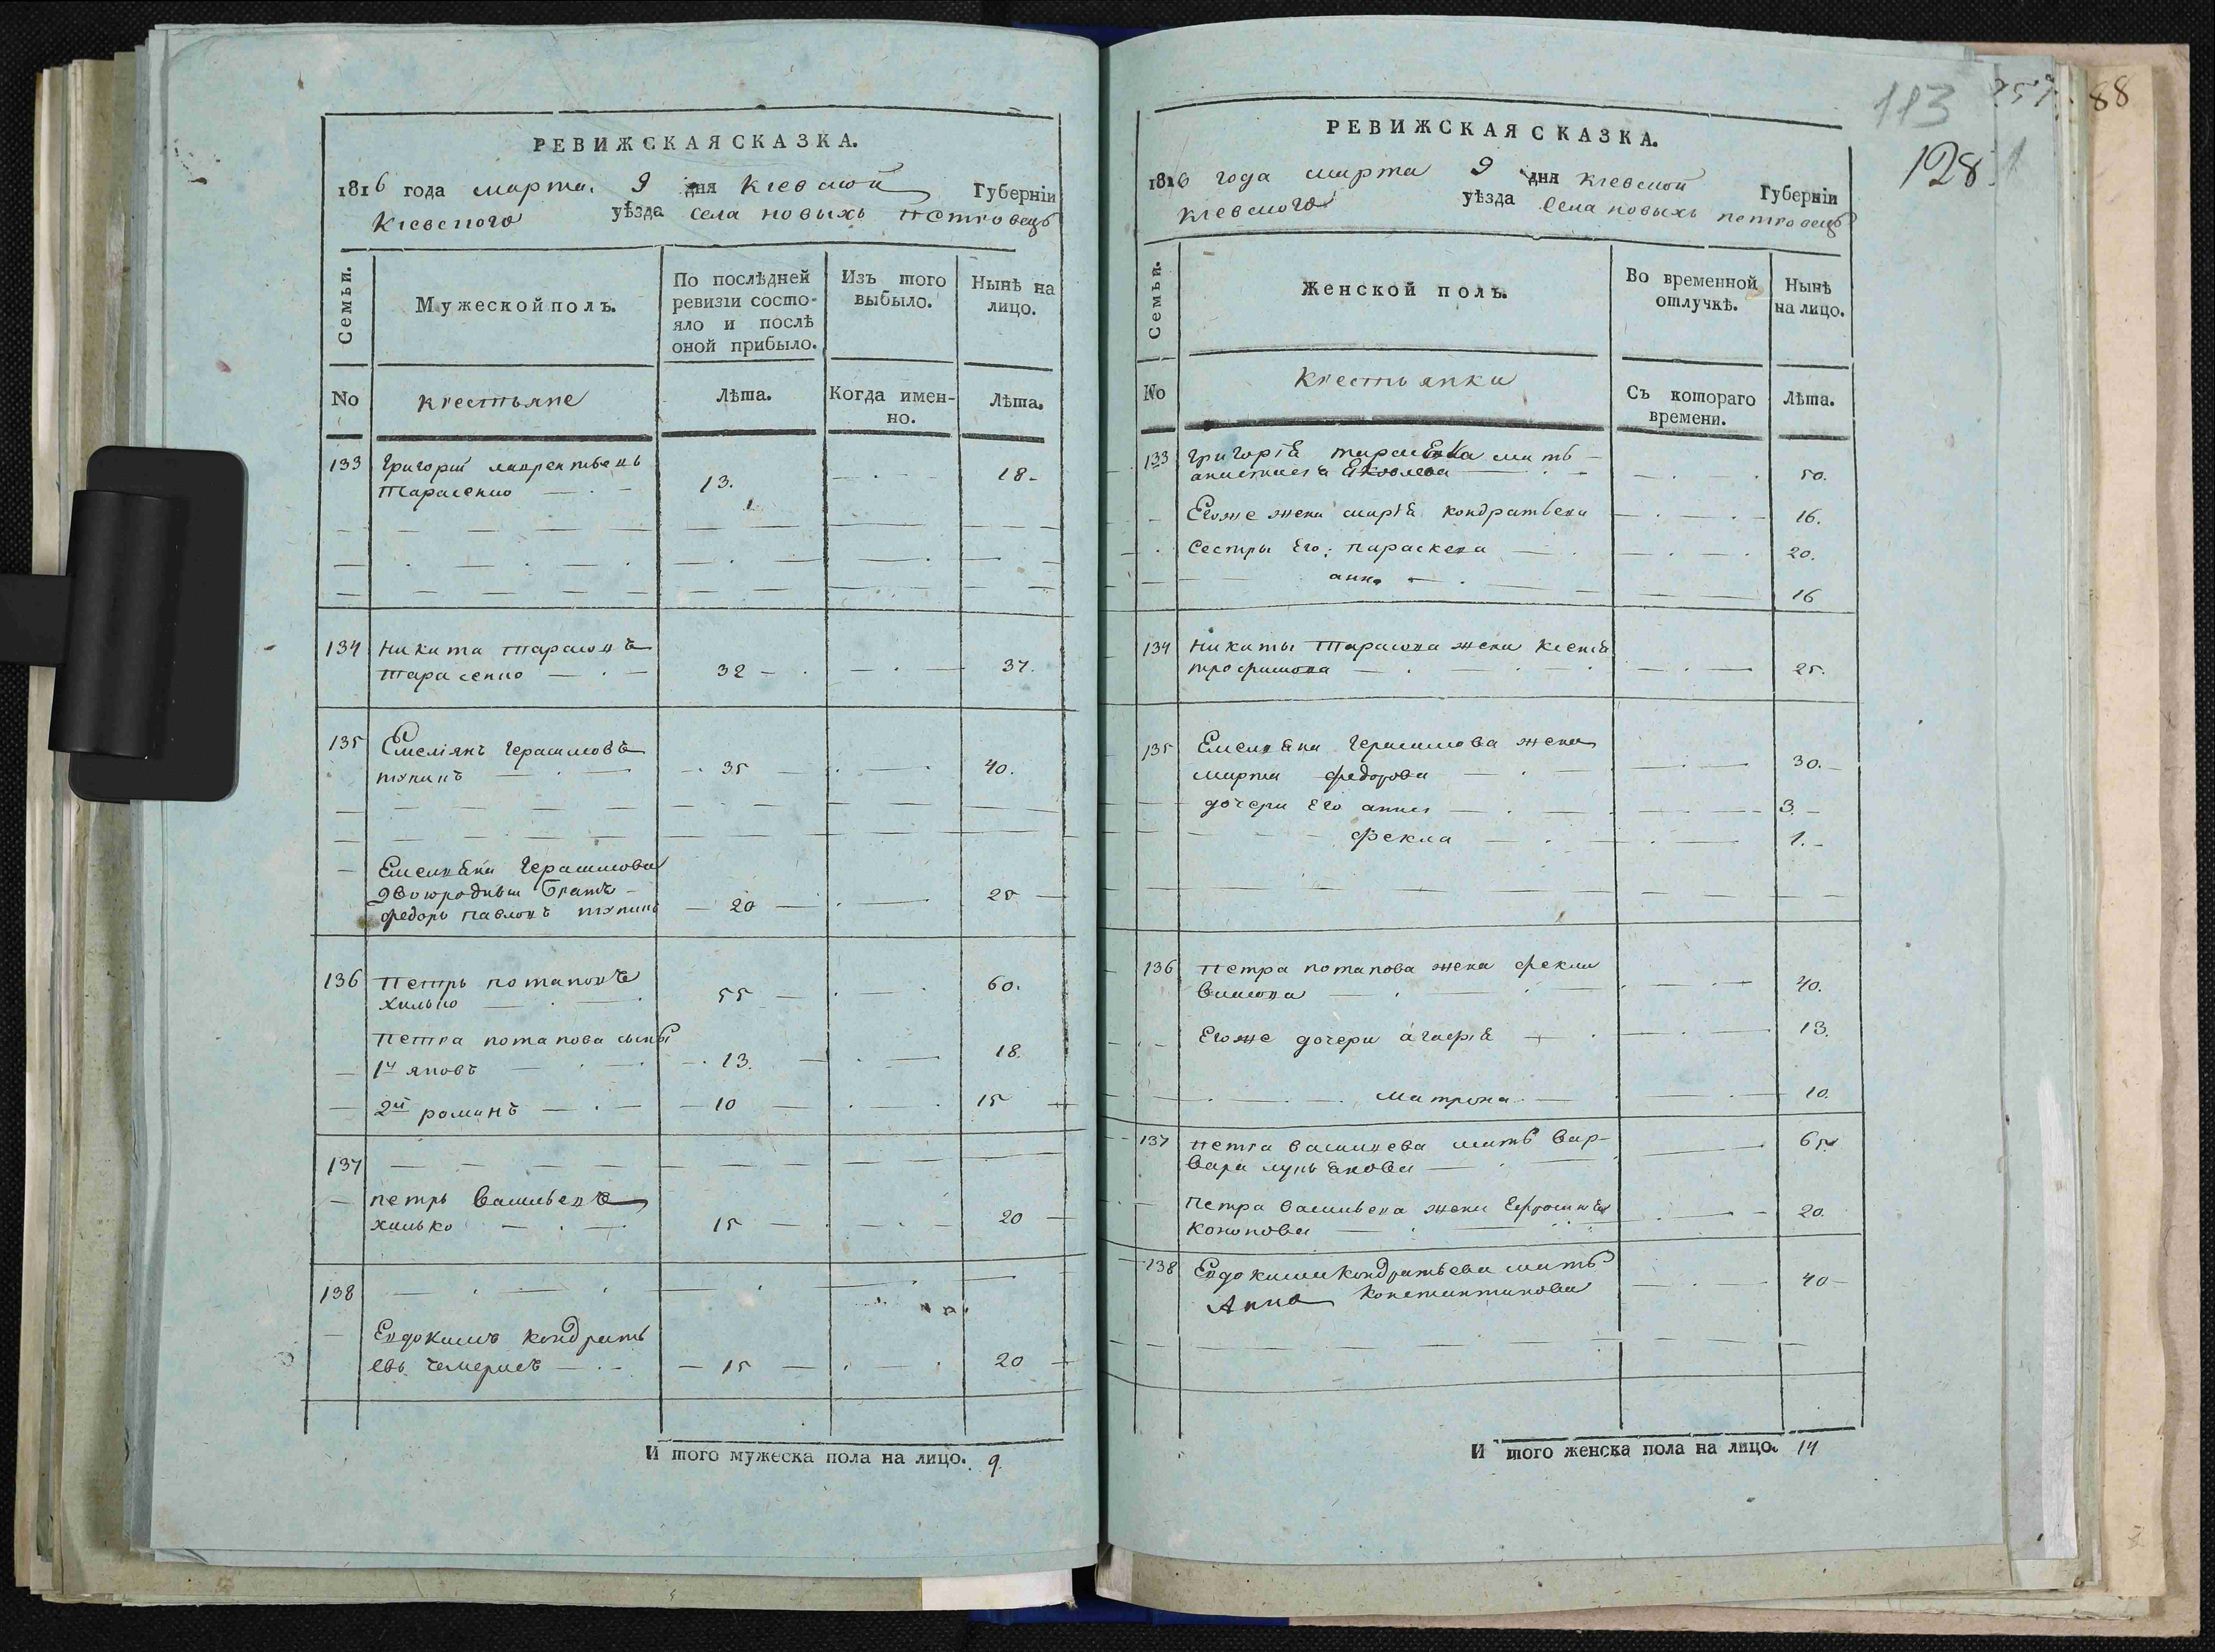 РЕВИЖСКАЯ СКАЗКА.
1816 года марта 9 дня Кіевской Губерніи
Кіевского уѣзда села новыхъ петровецъ
Семьи.
Мужеской полъ.
По послѣдней ревизіи состо-
яло и послѣ
оной прибыло.
Изъ того выбыло.
Нынѣ на лицо.
No
крестьяне
Лѣта.
Когда имен-
но.
Лѣта.
133 Григорий лаврентьевъ
Тарасенко 13. 18.
134 Никита тарасовъ
тарасенко 32 37.
135 Емеліянъ Герасимовъ
тупикъ 35 40.
Емелияна Герасимова
двоюродный братъ
федоръ павловъ тупикъ 20 25
136 Петръ потаповъ
хилько 55 60.
Петра потапова сыны
1й яковъ 13. 18.
2й романъ 10 15
137
петръ Васильевъ
хилько 15 20
138
Евдокимъ кондрать
евъ чемерисъ 15 20
И того мужеска пола на лицо. 9.
113
257.
88
128.
РЕВИЖСКАЯ СКАЗКА.
1816 года марта 9 дня Кіевской Губерніи
Кіевского уѣзда Села новыхъ петровецъ
Семьи.
Женской полъ.
Во временной
отлучкѣ.
Нынѣ
на лицо.
No
Крестьянки
Съ котораго
времени.
Лѣта.
133 Григорія тарасенка мать
анастасія Яковлева 50.
Егоже жена марія кондратьева 16.
Сестры Его: параскева 20.
анна 16
134 Никиты Тарасова жена ксенія
трофимова 25.
135 Емеляна Герасимова жена
марта федорова 30.
дочери Его анна 3.
фекла 1.
136 Петра потапова жена фекла
власова 40.
Егоже дочери агафія 13.
матрона 10.
137 Петра василиева мать Вар-
вара лукьянова 65.
Петра васильева жена Ефросинія
кононова 20.
138 Евдокима кондратьева мать
Анна константинова 40
И того женска пола на лицо. 14